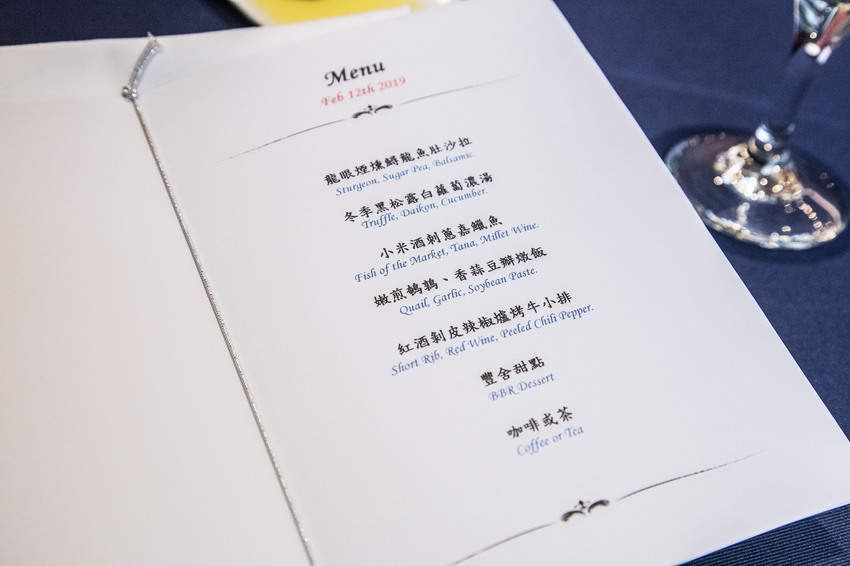 Menu
Feb 12th 2019
龍眼煙燻鱘龍魚肚沙拉
Sturgeon, Sugar Pea, Balsamic.
冬季黑松露白蘿蔔濃湯
Truffle, Daikon, Cucumber.
小米酒刺蔥嘉鱲魚
Fish of the Market, Tana, Millet Wine.
嫩煎鵪鶉、香蒜豆瓣燉飯
Quail, Garlic, Soybean Paste.
紅酒剝皮辣椒爐烤牛小排
Short Rib, Red Wine, Peeled Chili Pepper.
豐舍甜點
BBR Dessert
咖啡或茶
Coffee or Tea